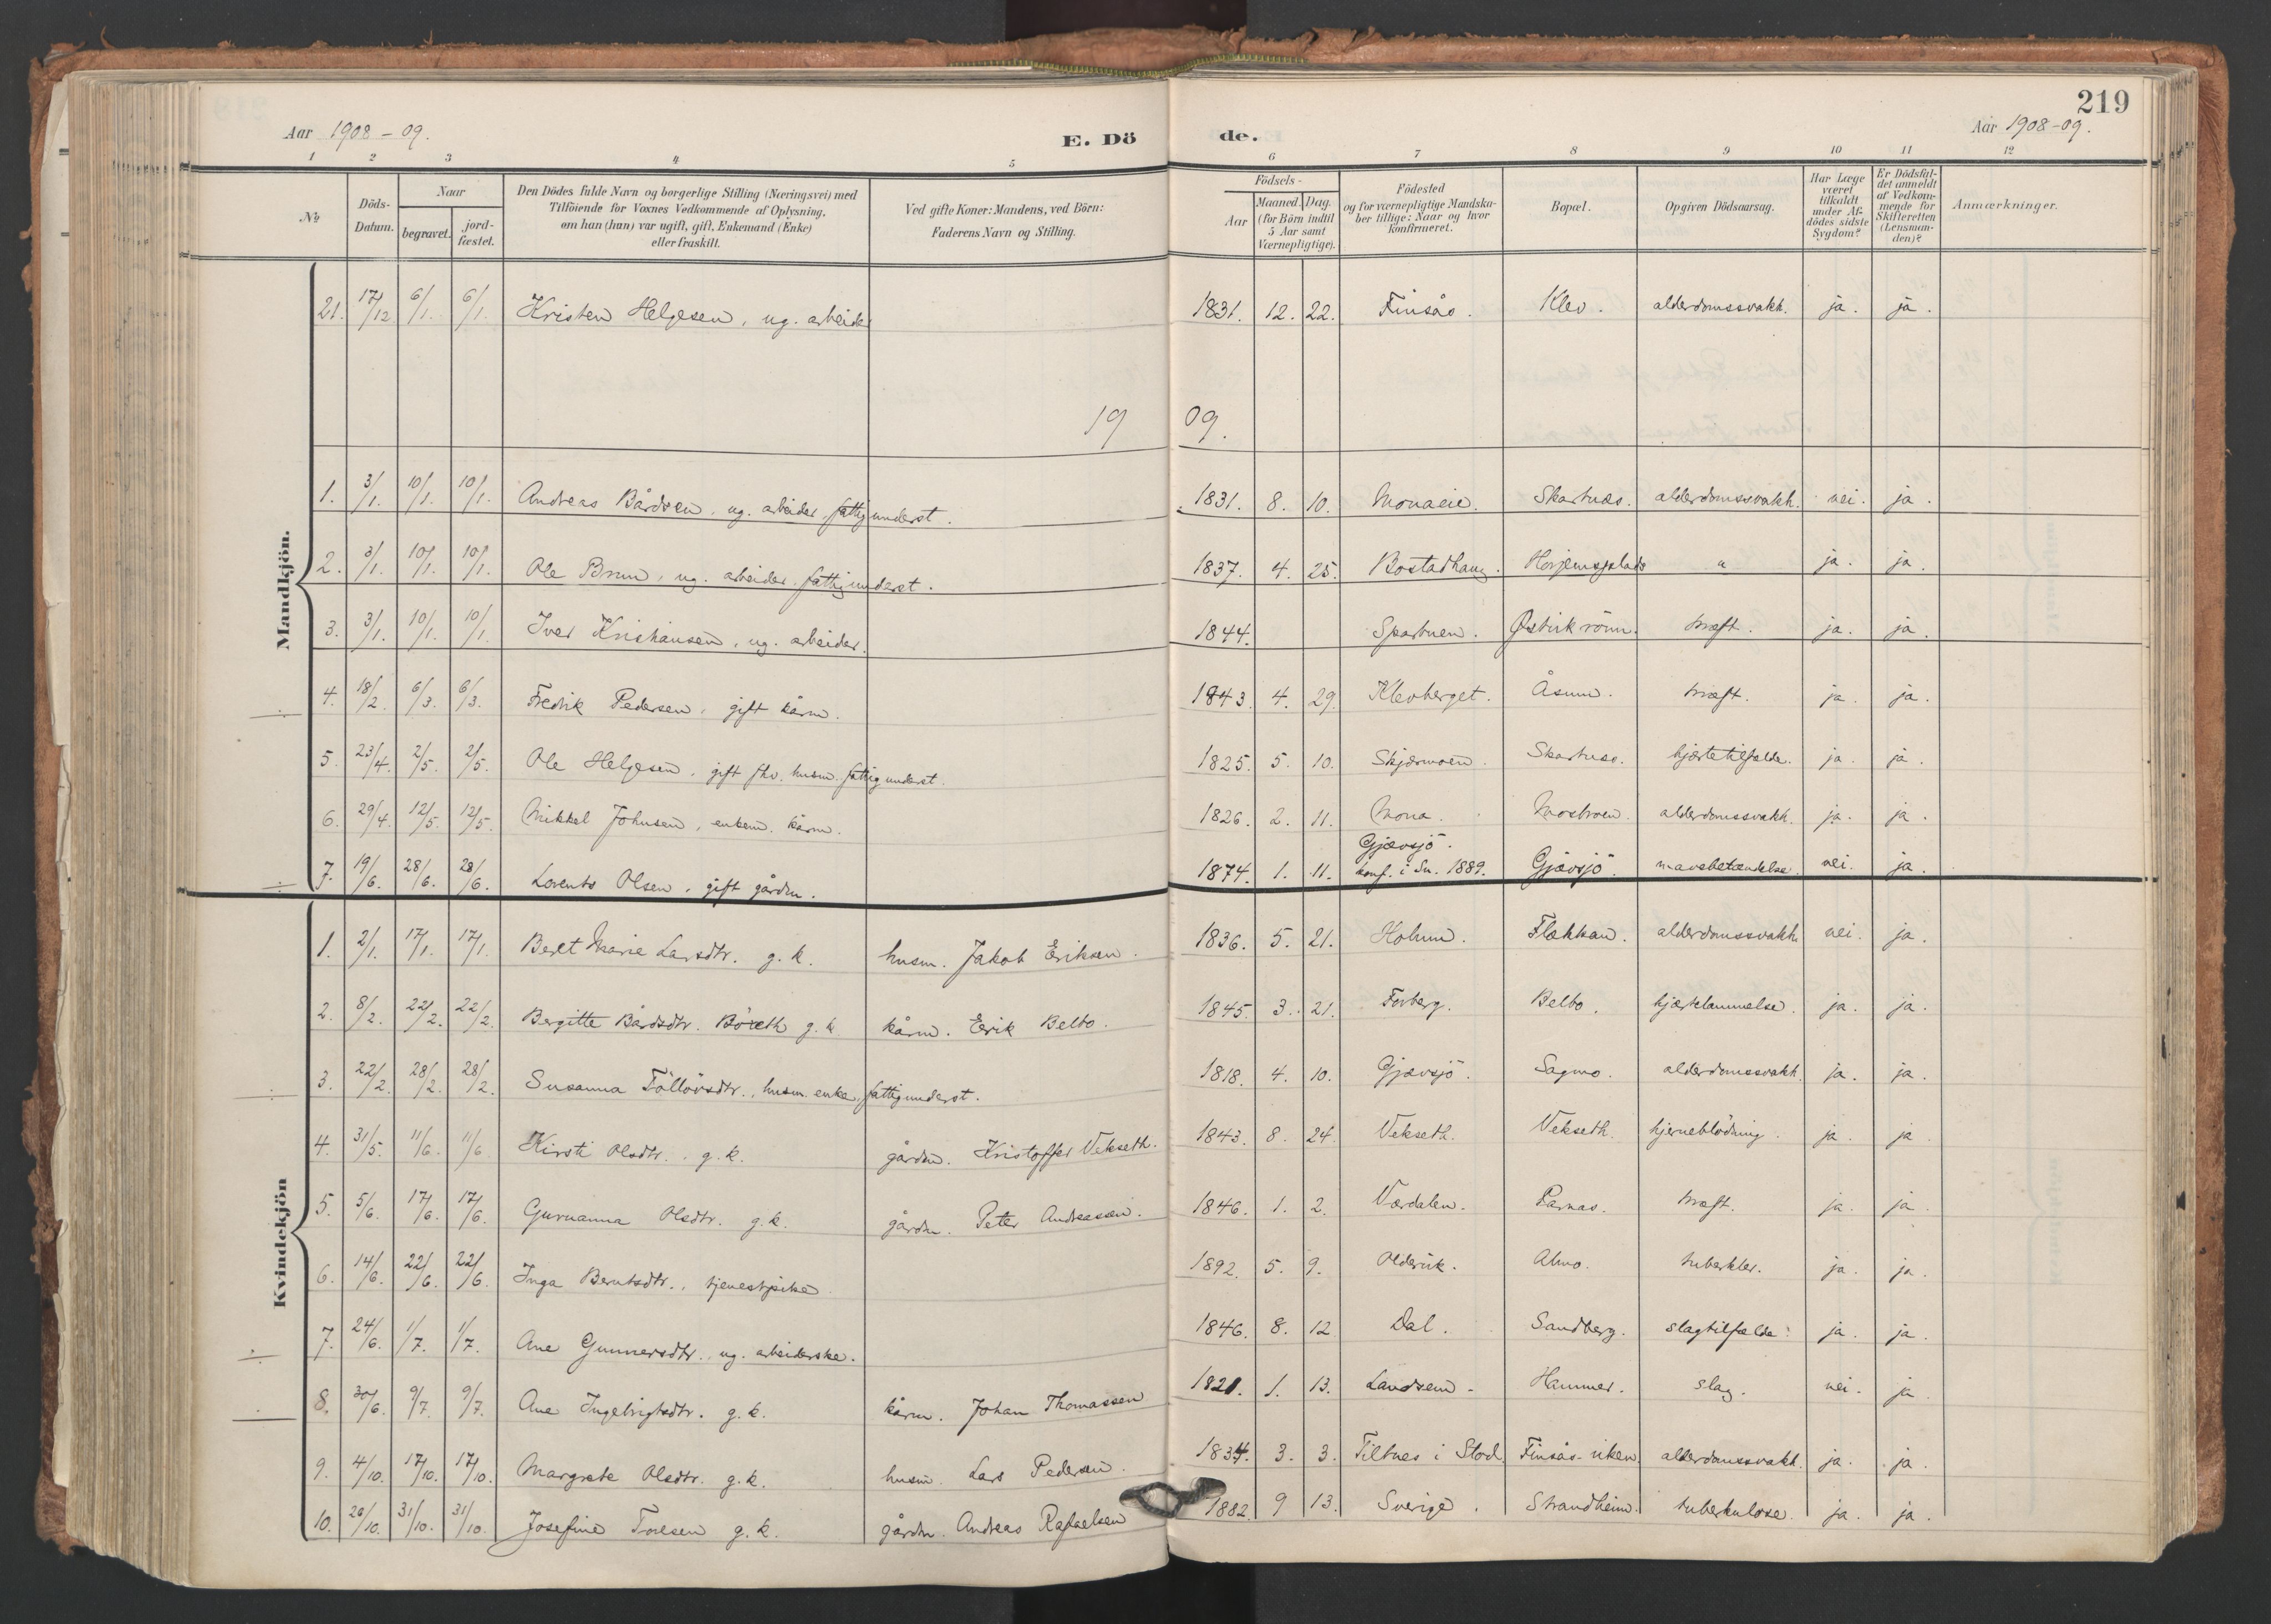 219
Aar 1908-09.
E. Dö de.
Aar 1908-09.
1 2 3 4 5 6 7 8 9 10 11 12
No
Döds-Datum.
Naar
begravet.
jord-fæstet.
Den Dödes fulde Navn og borgerlige Stilling (Næringsvei) med
Tilföiende for Voxnes Vedkommende af Oplysning,
om han (hun) var ugift, gift, Enkemand (Enke)
eller fraskilt.
Ved gifte Koner: Mandens, ved Börn:
Faderens Navn og Stilling.
Födsels-
Aar
Maaned. Dag.
(for Börn indtil
5 Aar samt
Værnepligtige).
Födested
og for værnepligtige Mandska-
ber tillige: Naar og hvor
konfirmeret.
Bopæl.
Opgiven Dödsaarsag.
Har Læge
været
tilkaldt
under Af-
dödes sidste
Sygdom?
Er Dödsfal-
det anmeldt
af Vedkom-
mende for
Skifteretten
(Lensman-
den)?
Anmærkninger.
Mandkjön.
21. 17/12 6/1. 6/1. Kristen Helgesen, ug. arbeider 1831. 12. 22. Finsås. Klev. alderdomssvakh. ja. ja.
19 09.
1. 3/1. 10/1. 10/1. Andreas Bårdsen, ug. arbeider, fattigunderst. 1831. 8. 10. Monaeie. Skartnes. alderdomssvakh. nei. ja.
2. 3/1. 10/1. 10/1. Ole Brun, ug. arbeider, fattigunderst. 1837. 4. 25. Bostadhaug. Horjemsplads " ja. ja.
3. 3/1. 10/1. 10/1. Iver Kristiansen, ug. arbeider. 1844. Sparbuen. Østvikrönn. kræft. ja. ja.
4. 18/2. 6/3. 6/3. Fredrik Pedersen, gift kårm. 1843 4. 29. Klevberget. Åsum. kræft. ja. ja.
5. 23/4. 2/5. 2/5. Ole Helgesen, gift fhv. husm. fattigunderst. 1825. 5. 10. Skjærmoen. Skartnes. hjertetilfælde. ja. ja.
6. 29/4. 12/5. 12/5. Mikkel Johnsen, enkem. kårm. 1826. 2. 11. Mona. Mosbroen. alderdomssvakh. ja. ja.
7. 19/6. 28/6. 28/6. Lorents Olsen, gift gårdm. 1874. 1. 11. Gjævsjö. konf. i Sn. 1889. Gjævsjö. mavebetændelse. nei. ja.
Kvindekjön
1. 2/1. 17/1. 17/1. Beret Marie Larsdtr. g. k. husm. Jakob Eriksen. 1836. 5. 21. Holum. Flekkan. alderdomssvakh. nei. ja.
2. 8/2. 22/2. 22/2. Bergitte Bårdsdtr. Böreth g. k. kårm. Eerik Belbo. 1845. 3. 21. Forberg. Belbo. hjertelammelse. ja. ja.
3. 22/2. 28/2. 28/2. Susanna Tollövsdtr., husm. enke, fattigunderst. 1818. 4. 10. Gjævsjö. Sagmo. alderdomssvakh. ja. ja.
4. 31/5. 11/6. 11/6 Kirsti Olsdtr., g. k. gårdm. Kristoffer Vekseth. 1843. 8. 24. Vekseth. Vekseth. hjerneblödning. ja. ja
5. 5/6. 17/6. 17/6. Gurunanna Olsdtr. g. k. gårdm. Peter Andreassen. 1846. 1. 2. Værdalen. Parnas. kræft. ja. ja.
6. 14/6. 22/6. 22/6. Inga Berntsdtr., tjenestpike. 1892. 5. 9. Oldervik. Almo. tuberkler. ja. ja.
7. 24/6. 1/7. 1/7. Ane Gunnersdtr., ug. arbeiderske. 1846. 8. 12 Dal. Sandberg. slagtilfælde. ja. ja.
8. 30/6. 9/7. 9/7. Ane Ingebrigtsdtr. g. k. kårm. Johan Thomassen 1821. 1. 13. Landsem. Hammer. slag. nei. ja
9. 4/10. 17/10. 17/10. Margrete Olsdtr. g. k. husm. Lars Pedersen. 1834. 3. 3. Tiltnes i Stod. Finsås-viken. alderdomssvakh. ja. ja.
10. 20/10. 31/10. 31/10. Josefine Toresen g. k. gårdm. Andreas Rafaelsen 1882. 9 13. Sverige. Strandheim. tuberkulose. ja. ja.